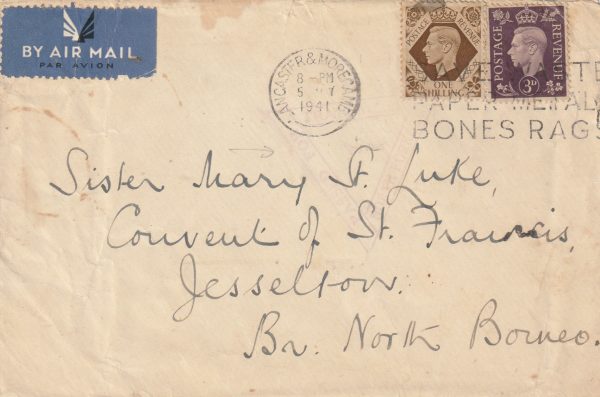 BY AIR MAIL
PAR AVION
LANCASTER & MORECAMBE
8 - PM
1941
POSTAGE REVENUE
ONE
SHILLING
POSTAGE
REVENUE
3D
PAPER METAL
BONES RAGS
Sister Mary St. Luke,
Convent of St. Francis,
Jesselton.
Br. North Borneo.